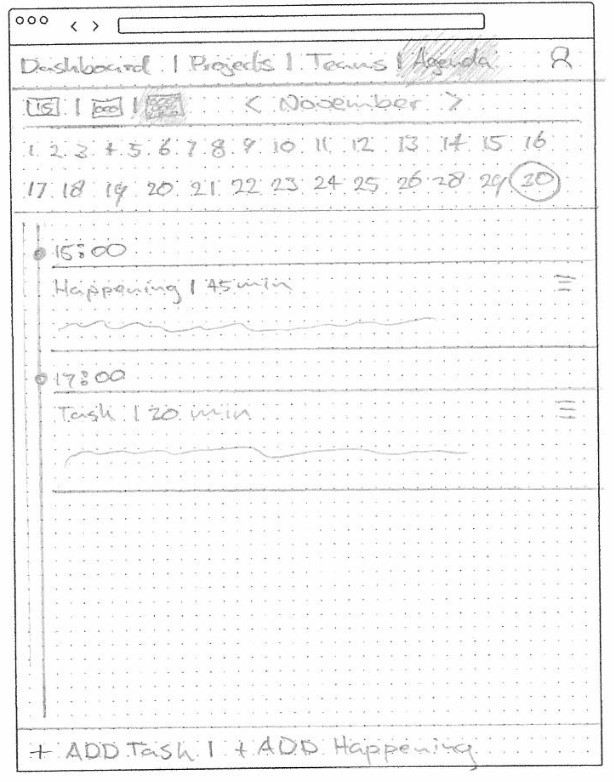 Dashboard | Projects | Teams | Agenda
15 | | < November >
1 2 3 4 5 6 7 8 9 10 11 12 13 14 15 16
17 18 19 20 21 22 23 24 25 26 28 29 30
15:00
Happening | 45 min
17:00
Task | 20 min
+ ADD Task | + ADD Happening